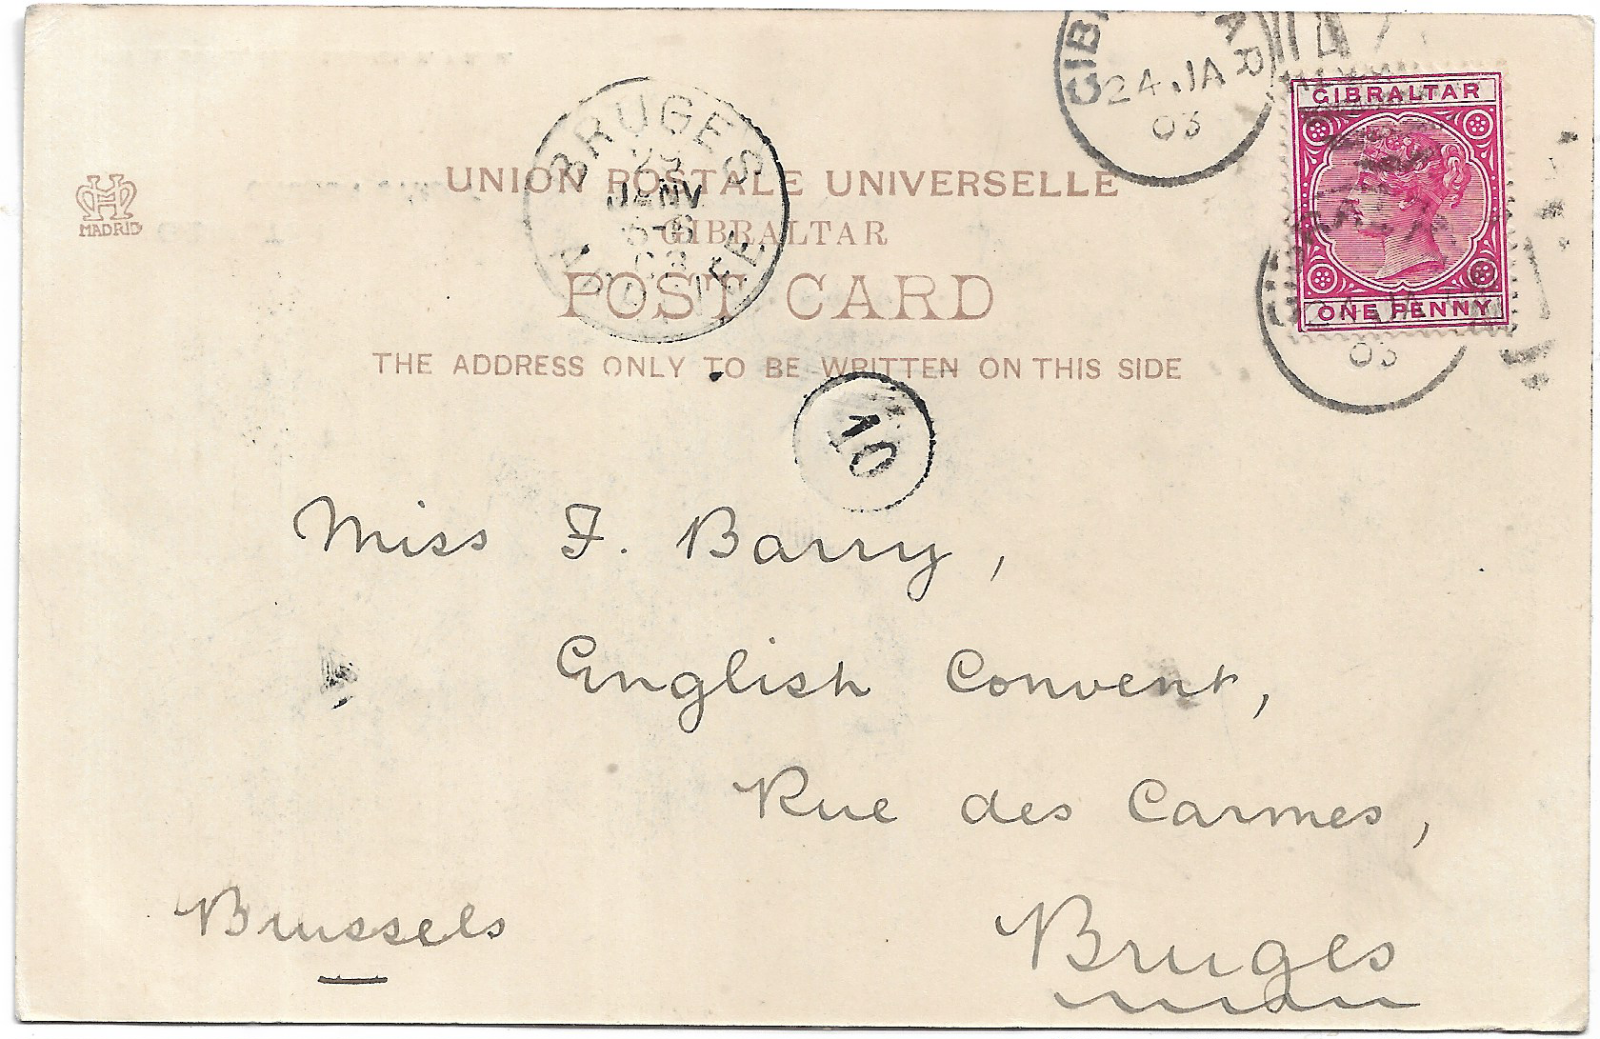 GIBRALTAR
24 JA
03
GIBRALTAR
ONE PENNY
24 JA
03
BRUGES
JANV
MADRID
UNION POSTALE UNIVERSELLE
GIBRALTAR
POST CARD
THE ADDRESS ONLY TO BE WRITTEN ON THIS SIDE
10
Miss F. Barry,
English Convent,
Rue des Carmes,
Bruges
Brussels